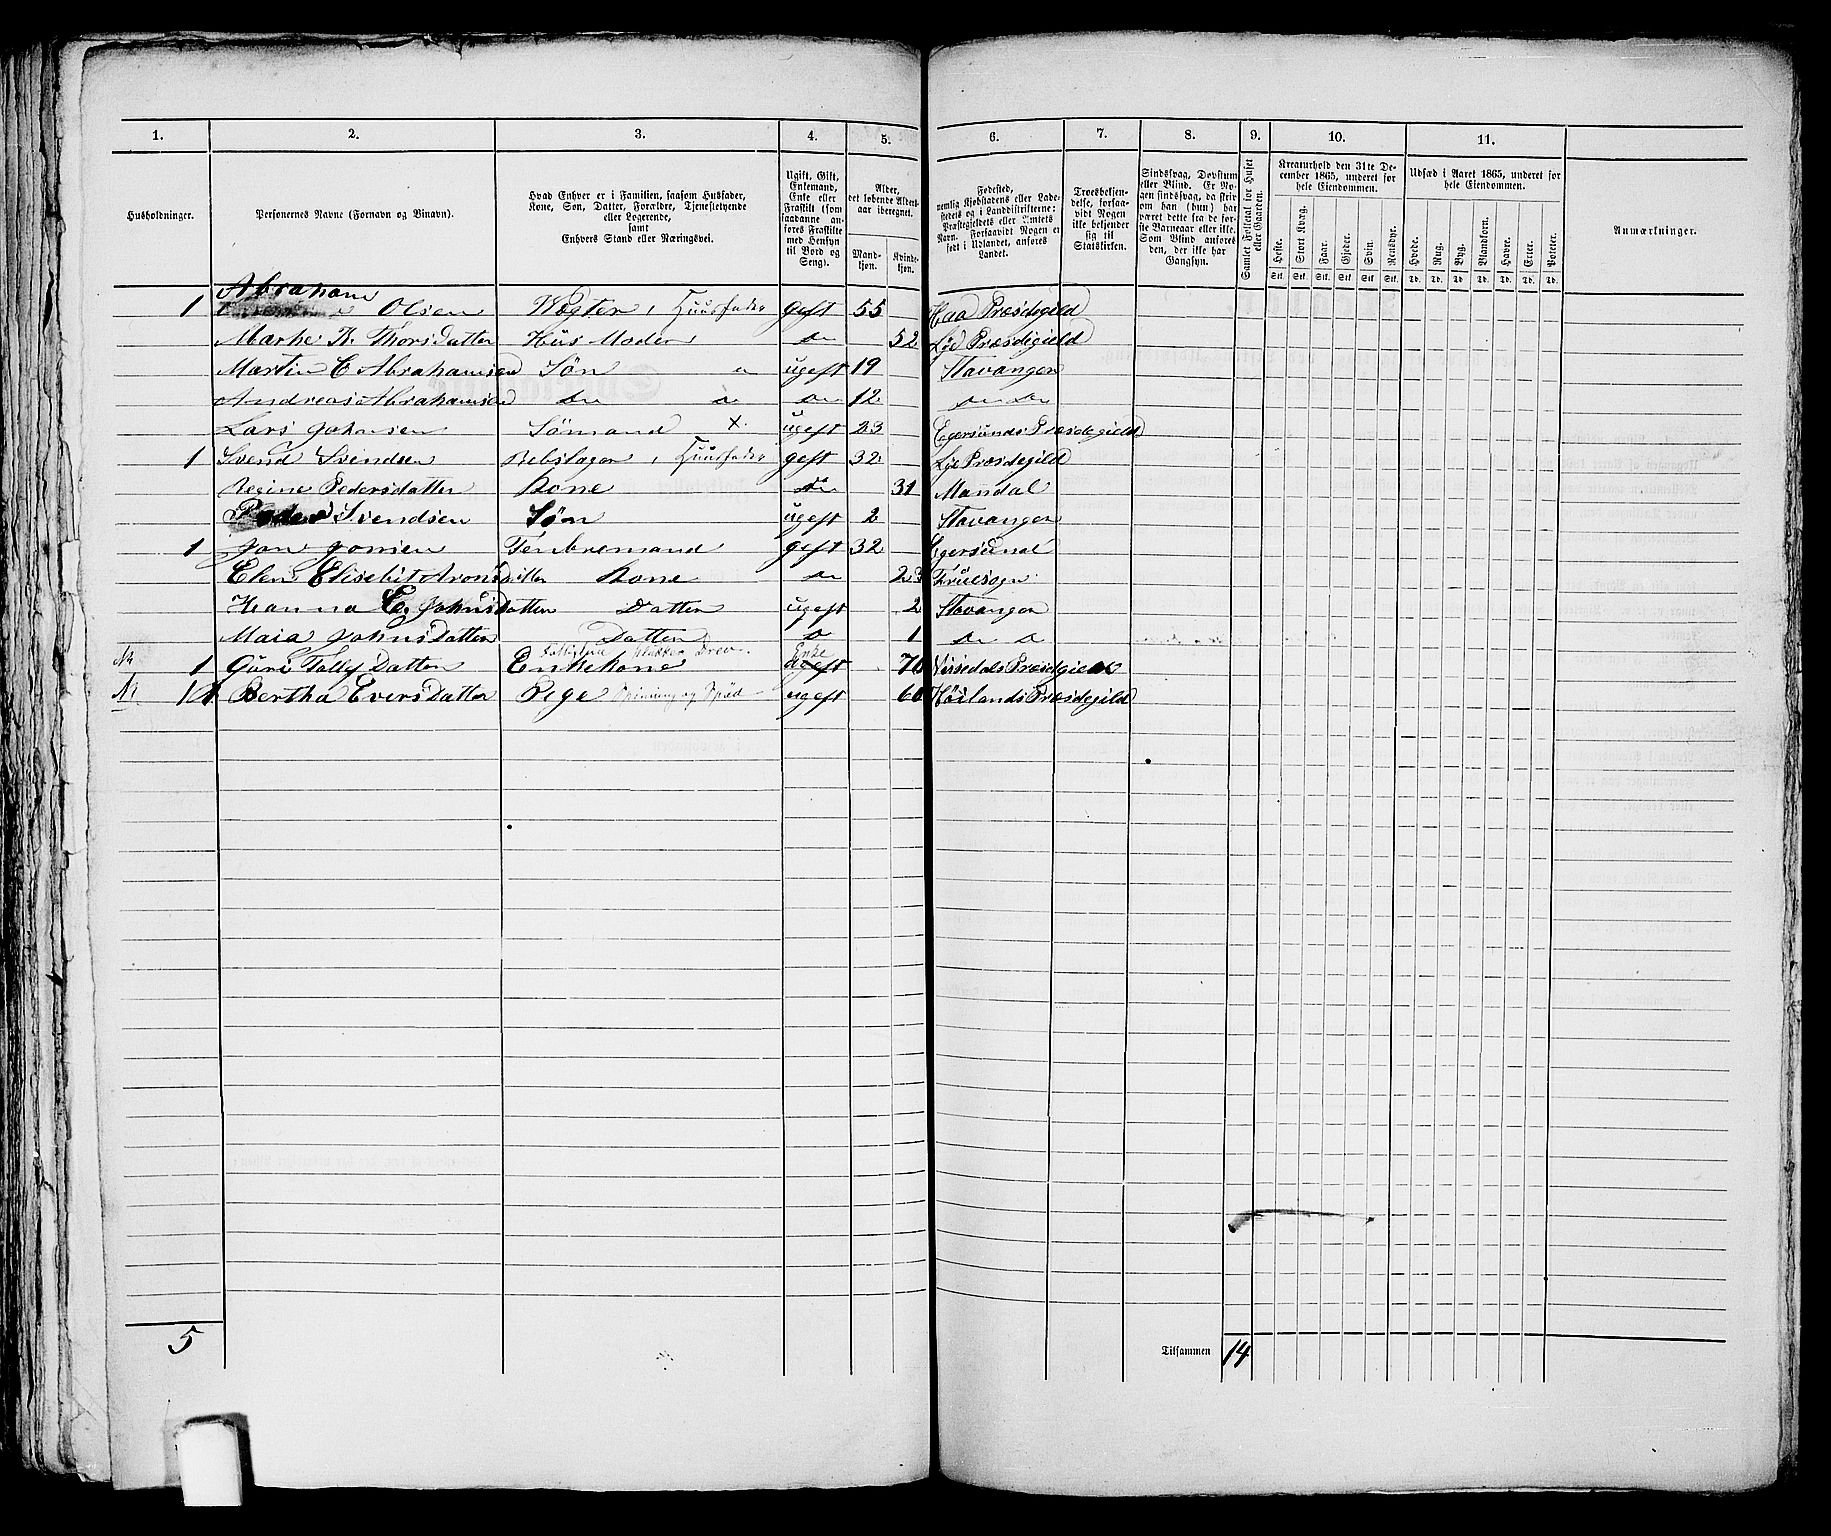 1. 2. 3. 4. 5. 6. 7. 8. 9. 10. 11.
Husholdninger. Personernes Navne (Fornavn og Binavn). Hvad Enhver er i Familien, saasom Husfader, Kone, Søn, Datter, Forældre, Tjenestetyende eller Logerende, samt Enhvers Stand eller Næringsvei. Ugift, Gift, Enkemand, Enke eller Fraskilt (som saadanne anføres Fraskilte med Hensyn til Bord og Seng). Alder, det løbende Aldersaar iberegnet. Mandkjøn. Kvindekjøn.
Fødested, nemlig Kjøbstadens eller Ladestedets og i Landdistrikterne: Præstegjeldets eller Amtets Navn. Forsaavidt Nogen er født i Udlandet, anføres Landet. Troesbekjendelse, forsaavidt Nogen ikke bekjender sig til Statskirken. Sindssvag, Døvstum eller Blind. Er Nogen sindssvag, da skriv om han (hun) har været dette fra de første Barneaar eller ikke. Som Blind anføres den, der ikke har Gangsyn. Samlet Folketal for Huset eller Gaarden.
Kreaturhold den 31te December 1865, underet for hele Eiendommen. Heste. Stort Kvæg. Faar. Gjeder. Svin. Rensdyr. Udsæd i Aaret 1865, underet for hele Eiendommen. Hvede. Rug. Byg. Blandkorn. Havre. Erter. Poteter. Anmærkninger.
Stk. Stk. Stk. Stk. Stk. Stk. Td. Td. Td. Td. Td. Td. Td.
Abraham
1 Olsen Vægter, Huusfader geft 55 Haa Præsdegield
Marhe K. Thors Datter Hus Moder do 52 Lÿe Præsdegield
Martin C Abrahamsen Søn ugeft 19 Stavanger
Andreas Abrahamsen do do 12 do do
Lars Johnsen Sømand X. ugeft 23 Egersunds Præsdegield
1 Svend Svendsen Rebslager, Huusfader geft 32 Lÿe Præsdegield
Regine Pedersdatter Kone do 31 Mandal
Peder Svendsen Søn ugeft 2 Stavanger
1 Jon Jonsen Tenbremand geft 32 Egersund
Elen Elisebit Aronsdatter Kone do 23 Fruesogn
Hanna C. Johns Datter Datter ugeft 2 Stavanger
Maia Johns Datter Datter do 1 do do
Fattiglem plukker Drev. Enke
1 Guri Tolljs Datter Enkekone ugeft 70 Præsdegield
1 Bertha Evers Datter Pige Spinning og ugeft 60 Høilands Præsdegield
5 Tilsammen 14